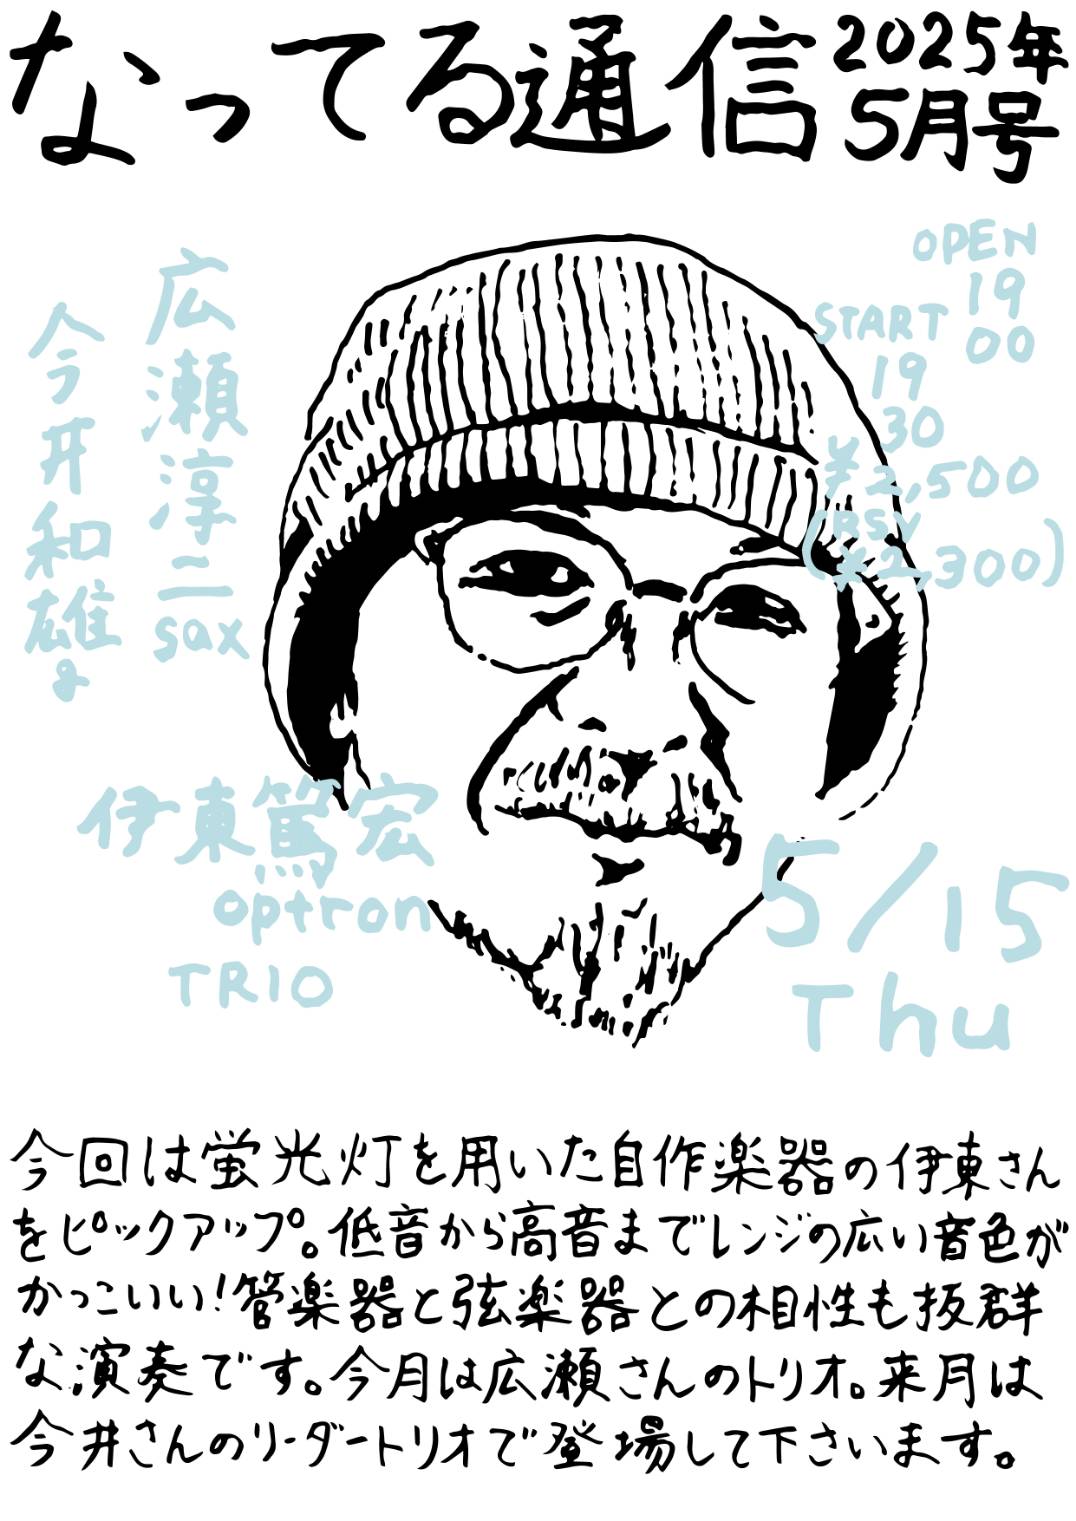 なってる通信
2025年
5月号
OPEN
19
00
START
19
30
¥2,500
(RSV
¥2,300)
広瀬淳二
sax
今井和雄
g
伊東篤宏
optron
TRIO
5/15
Thu
今回は蛍光灯を用いた自作楽器の伊東さん
をピックアップ。低音から高音までレンジの広い音色が
かっこいい!管楽器と弦楽器との相性も抜群
な演奏です。今月は広瀬さんのトリオ。来月は
今井さんのリーダートリオで登場して下さいます。